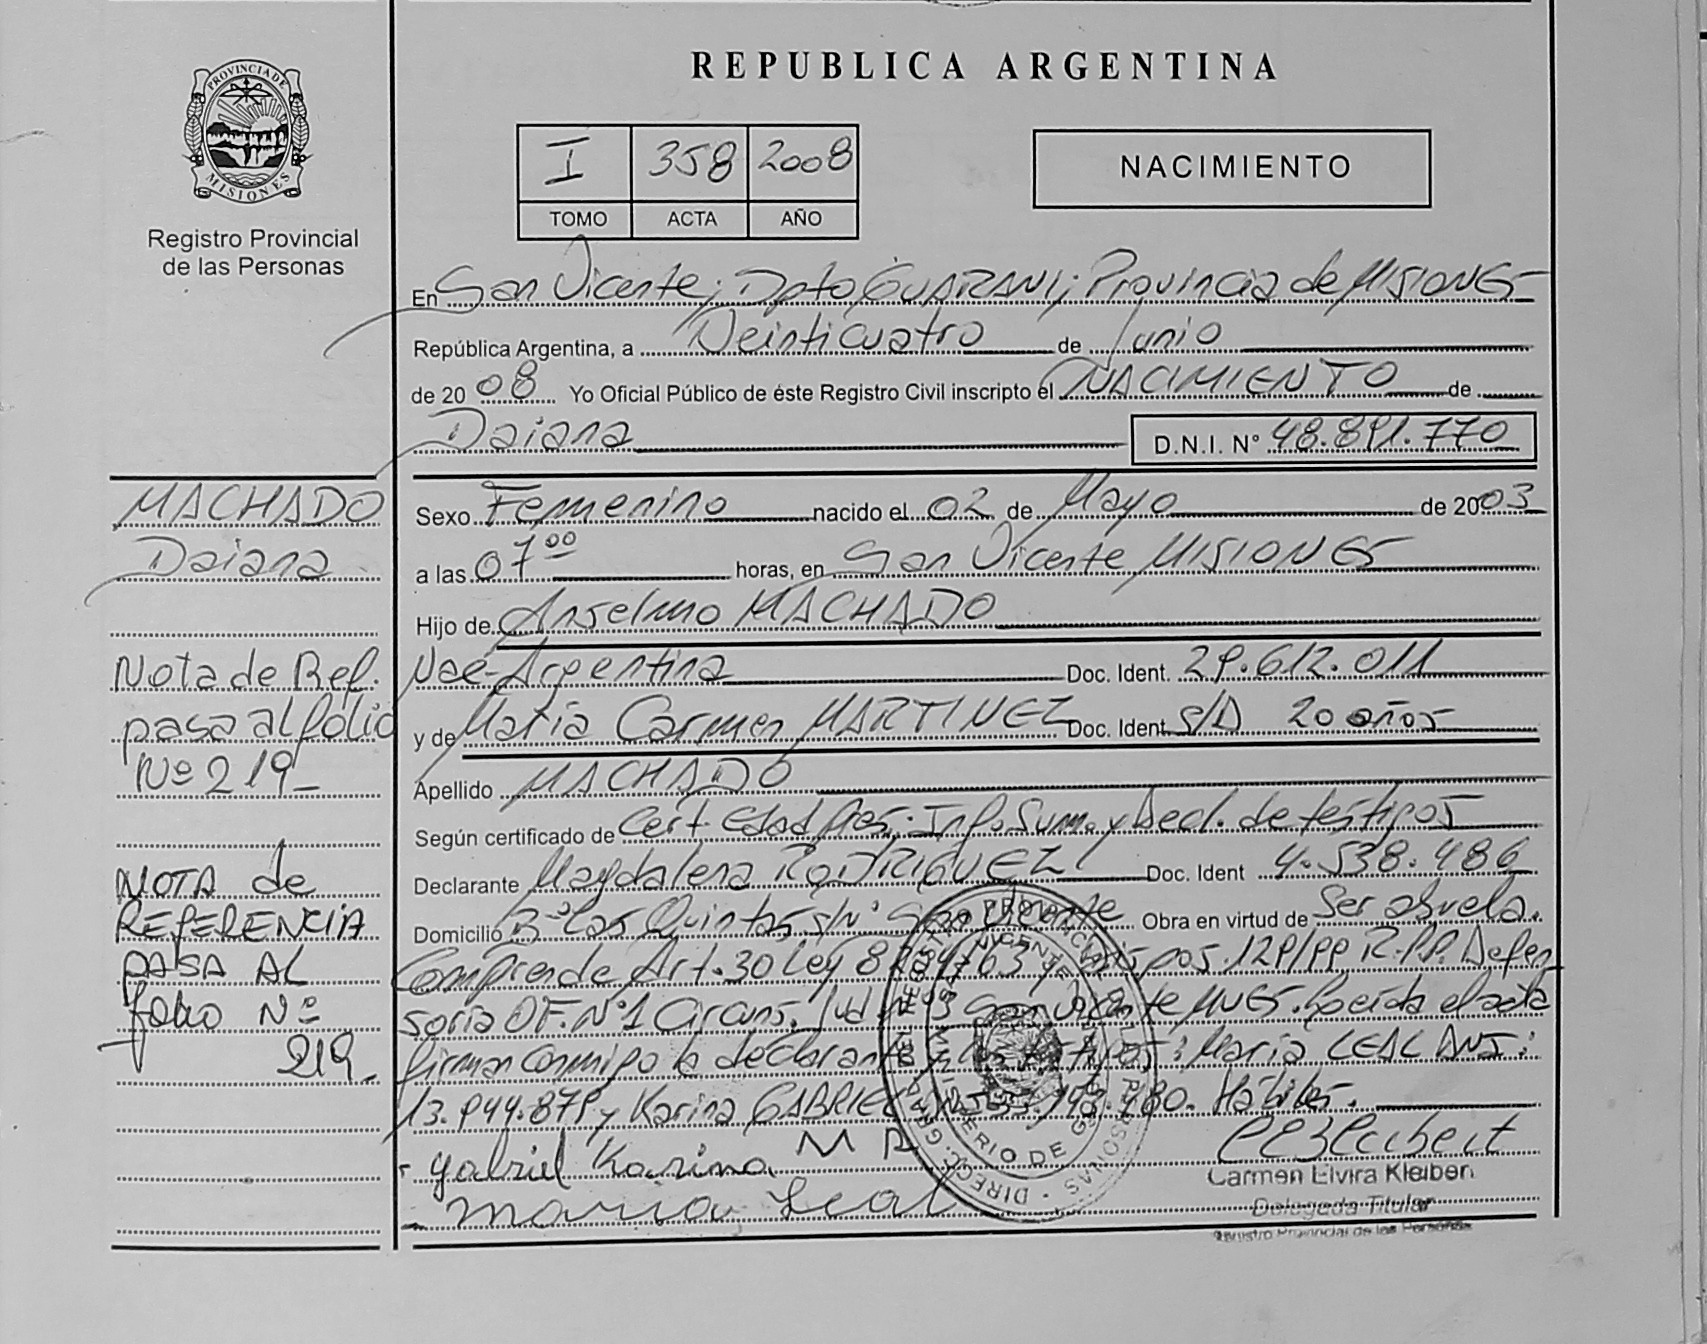 REPUBLICA ARGENTINA
PROVINCIA DE MISIONES
Registro Provincial
de las Personas
I 358 2008
TOMO ACTA AÑO
NACIMIENTO
En San Vicente; Dpto GUARANI; Provincia de MISIONES
República Argentina, a Veinticuatro de Junio
de 2008 Yo Oficial Público de éste Registro Civil inscripto el NACIMIENTO de
Daiana D.N.I. N° 48.891.770
MACHADO
Daiana
Nota de Ref.
pasa al fólio
Nº 219
NOTA de
REFERENCIA
PASA AL
folio Nº
219
Sexo Femenino nacido el 02 de Mayo de 2003
a las 07 00 horas, en San Vicente MISIONES
Hijo de Anselmo MACHADO
Nac-Argentina Doc. Ident. 29.612.011
y de María Carmen MARTINEZ Doc. Ident S/D 20 años
Apellido MACHADO
Según certificado de Cert. Edad Pres. Inf. Sum. y Decl. de testigos
Declarante Magdalena RODRIGUEZ Doc. Ident 4.538.486
Domicilio Bº Las Quintas s/nº San Vicente Obra en virtud de Ser abuela.
Comprende Art. 30 Ley y Dispos. 129/99 R.P.P. Defen
soria OF. Nº1 Circuns. Jud. San Vicente Leída el acta
firman conmigo la declarante y los testigos: María LEAL DNI:
13.944.879 y Karina GABRIEL Hábiles.
Gabriel Karina M R
Maria Leal
Carmen Elvira Kleibert
Delegada Titular
Registro Provincial de las Personas